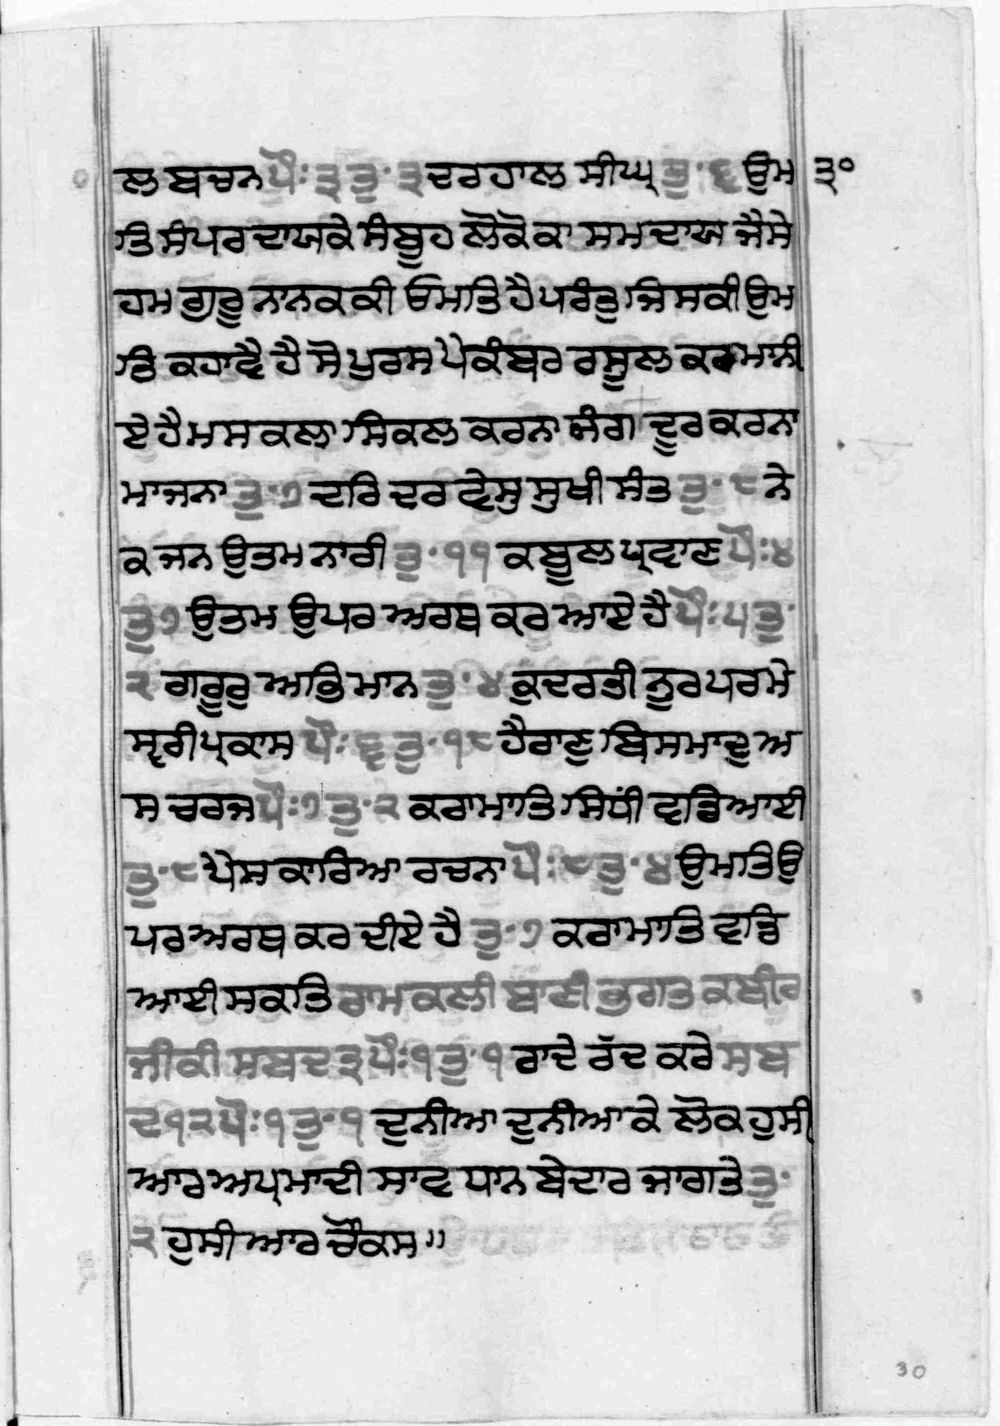 ਲ ਬਚਨ ਪੌਃ ੩ ਤੁ· ੩ ਦਰਹਾਲ ਸੀਘ੍ਰ ਤੁ· ੬ ਉਮ ੩੦
ਤਿ ਸੰਪਰਦਾਯਕੇ ਸੰਬੂਹ ਲੋਕੋ ਕਾ ਸਮਦਾਯ ਜੈਸੇ
ਹਮ ਗੁਰੂ ਨਾਨਕ ਕੀ ਓਮਤਿ ਹੈ ਪਰੰਤੂ ਜਿਸਕੀ ਉਮ
ਤਿ ਕਹਾਵੈ ਹੈ ਸੋ ਪੁਰਸ ਪੇਕੰਬਰ ਰਸੂਲ ਕਰ ਮਾਨੀ
ਏ ਹੈ ਮਸਕਲਾ ਸਿਕਲ ਕਰਨਾ ਜੰਗ ਦੂਰ ਕਰਨਾ
ਮਾਜਨਾ ਤੁ· ੭ ਦਰਿ ਦਰਵੇਸੁ ਸੁਖੀ ਸੰਤ ਤੁ· ੮ ਨੇ
ਕ ਜਨ ਉਤਮ ਨਾਰੀ ਤੁ· ੧੧ ਕਬੂਲ ਪ੍ਰਵਾਣ ਪੌਃ ੪
ਤੁ ੭ ਉਤਮ ਉਪਰ ਅਰਥ ਕਰ ਆਏ ਹੈ ਪੌਃ ੫ ਤੁ·
੨ ਗਰੂਰੁ ਅਭਿਮਾਨ ਤੁ· ੪ ਕੁਦਰਤੀ ਨੂਰ ਪਰਮੇ
ਸ੍ਵਰੀ ਪ੍ਰਕਾਸ ਪੌਃ ੬ ਤੁ· ੧੮ ਹੈਰਾਣੁ ਬਿਸਮਾਦੁ ਅ
ਸਚਰਜ ਪੌਃ ੭ ਤੁ· ੨ ਕਰਾਮਾਤਿ ਸਿਧੀ ਵਡਿਆਈ
ਤੁ· ੮ ਪੇਸਕਾਰਿਆ ਰਚਨਾ ਪੌਃ ੮ ਤੁ· ੪ ਉਮਤਿ ਉ
ਪਰ ਅਰਥ ਕਰ ਦੀਏ ਹੈ ਤੁ· ੭ ਕਰਾਮਾਤਿ ਵਡਿ
ਆਈ ਸਕਤਿ ਰਾਮਕਲੀ ਬਾਣੀ ਭਗਤ ਕਬੀਰ
ਜੀ ਕੀ ਸਬਦ ੩ ਪੌਃ ੧ ਤੁ· ੧ ਰਾਦੇ ਰੱਦ ਕਰੇ ਸਬ
ਦ ੧੨ ਪੌਃ ੧ ਤੁ· ੧ ਦੁਨੀਆ ਦੁਨੀਆ ਕੇ ਲੋਕ ਹੁਸੀ
ਆਰ ਅਪ੍ਰਮਾਦੀ ਸਾਵਧਾਨ ਬੇਦਾਰ ਜਾਗਤੇ ਤੁ·
੨ ਹੁਸੀਆਰ ਚੌਕਸ॥
30